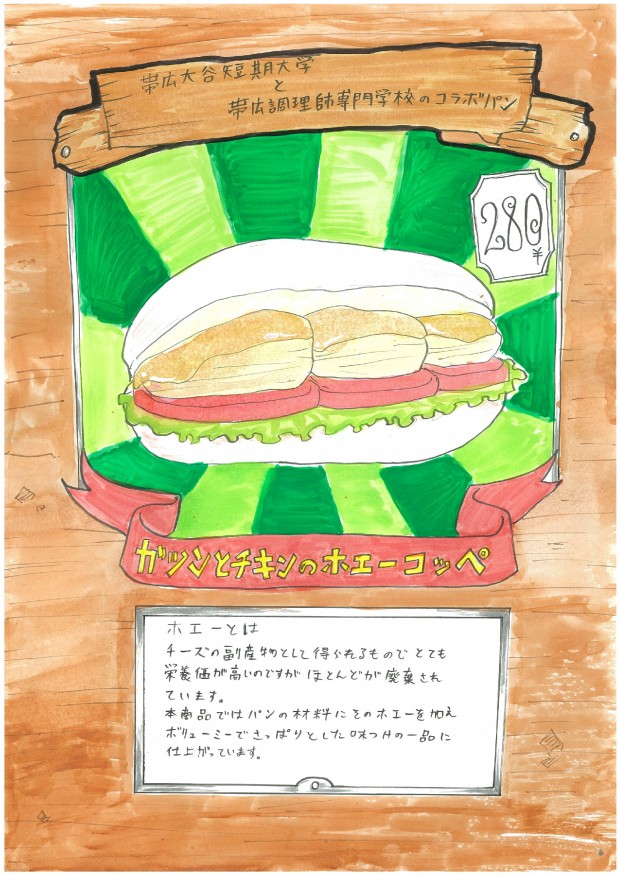 帯広大谷短期大学
と
帯広調理師専門学校のコラボパン
280
¥
ガツンとチキンのホエーコッペ
ホエーとは
チーズの副産物として得られるもので とても
栄養価が高いのですが ほとんどが 廃棄され
ています。
本商品では パンの材料に そのホエーを加え
ボリューミーで さっぱりとした 味つけの一品に
仕上がっています。